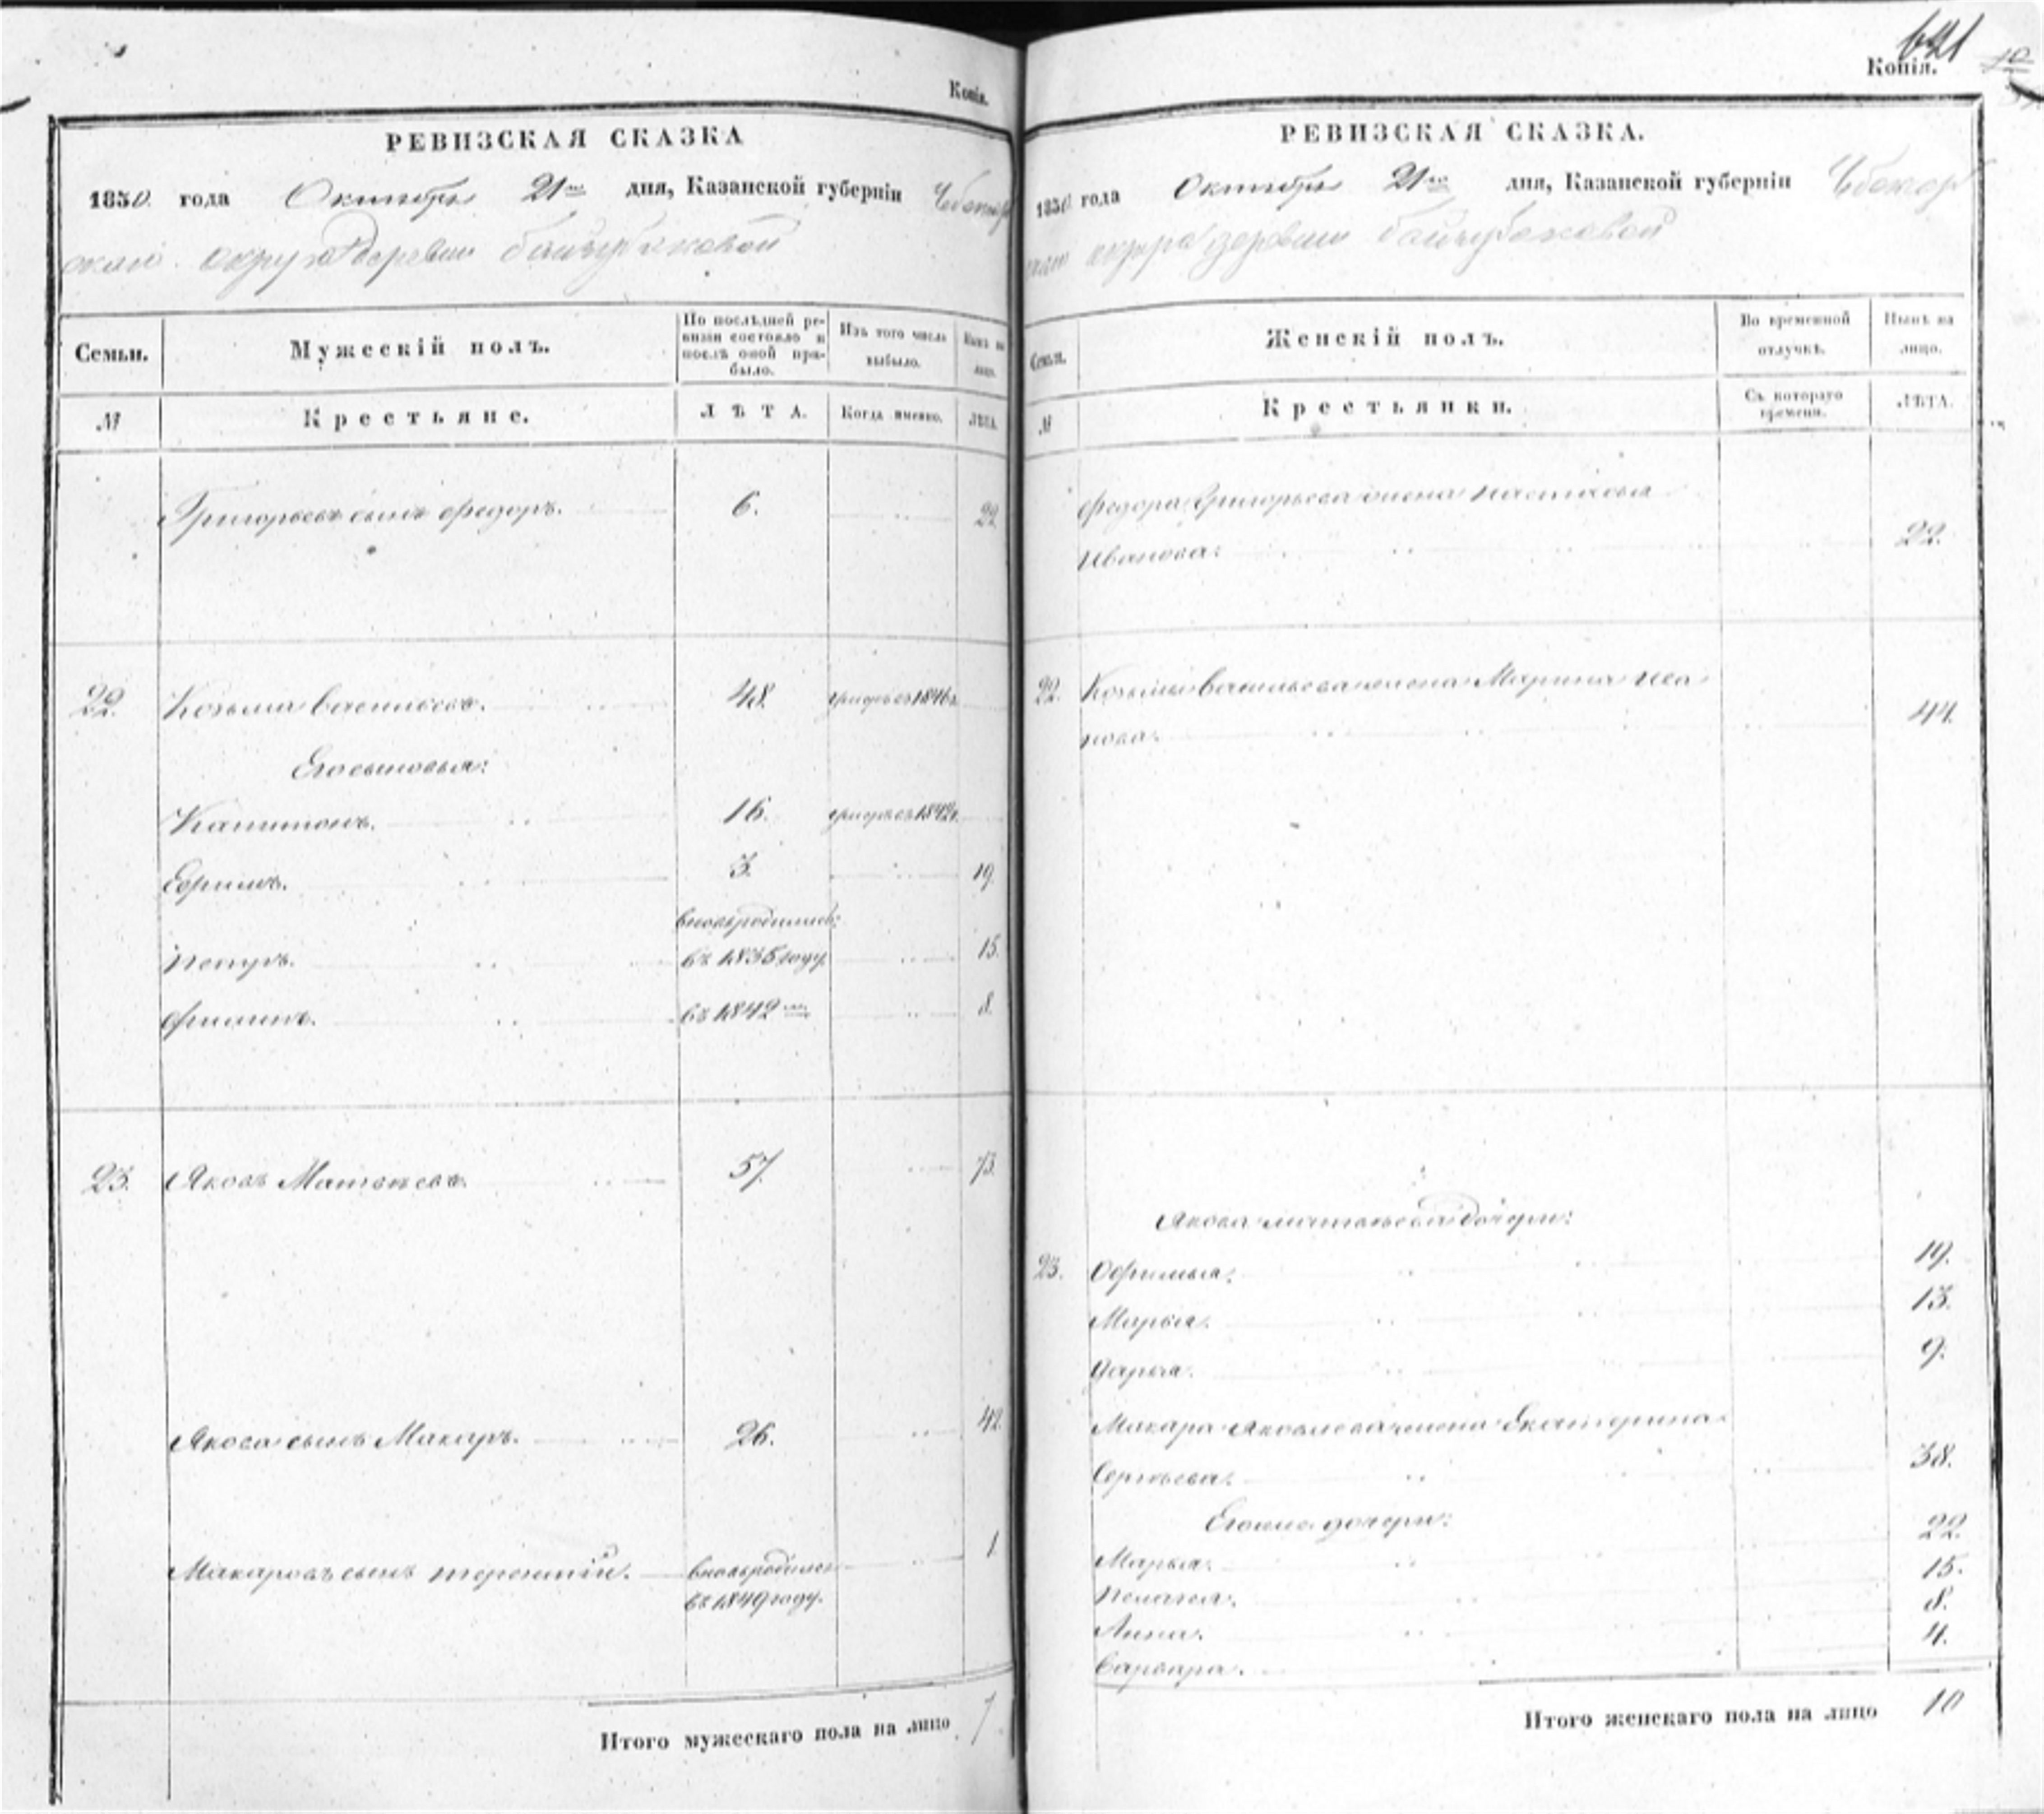 Копія.
РЕВИЗСКАЯ СКАЗКА
1850 года Октября 21го дня, Казанской губерніи Чебоксар
скаго округа деревни
Семьи.
Мужескій полъ.
По послѣдней ре-
визіи состояло и
послѣ оной при-
было.
Изъ того числа
выбыло.
Нынѣ на
лицо.
№
Крестьяне.
ЛѢТА.
Когда именно.
ЛѢТА.
Григорьевъ сынъ Федоръ. 6. 22
22. Козьма Васильевъ. 48. умре въ 1846 г.
Его сыновья:
Капитонъ. 16. умре въ 1842 г.
Ефимъ. 3. 19.
вновь родились:
Петръ. въ 1835 году 15.
Филипъ. въ 1842мъ 8.
23. Яковъ Матвѣевъ. 57. 73.
Якова сынъ Макаръ. 26. 42
Макаровъ сынъ Терентій. вновь родился 1.
въ 1849 году.
Итого мужескаго пола на лицо 7
621
Копія.
РЕВИЗСКАЯ СКАЗКА.
1850 года Октября 21го дня, Казанской губерніи Чебоксар
скаго округа деревни
Семьи.
Женскій полъ.
Во временной
отлучкѣ.
Нынѣ на
лицо.
№
Крестьянки.
Съ котораго
времени.
ЛѢТА.
Федора Григорьева жена Настасья
Иванова. 22.
22. Козьмы Васильева жена Марина Ива
нова. 44.
Якова Матвѣева дочери:
23. Офимья. 19.
Марья. 13.
Дарья. 9.
Макара Яковлева жена Екатерина
Сергѣева. 38.
Его дочери:
Марья. 22.
Пелагея. 15.
Анна. 8.
Варвара. 4.
Итого женскаго пола на лицо 10